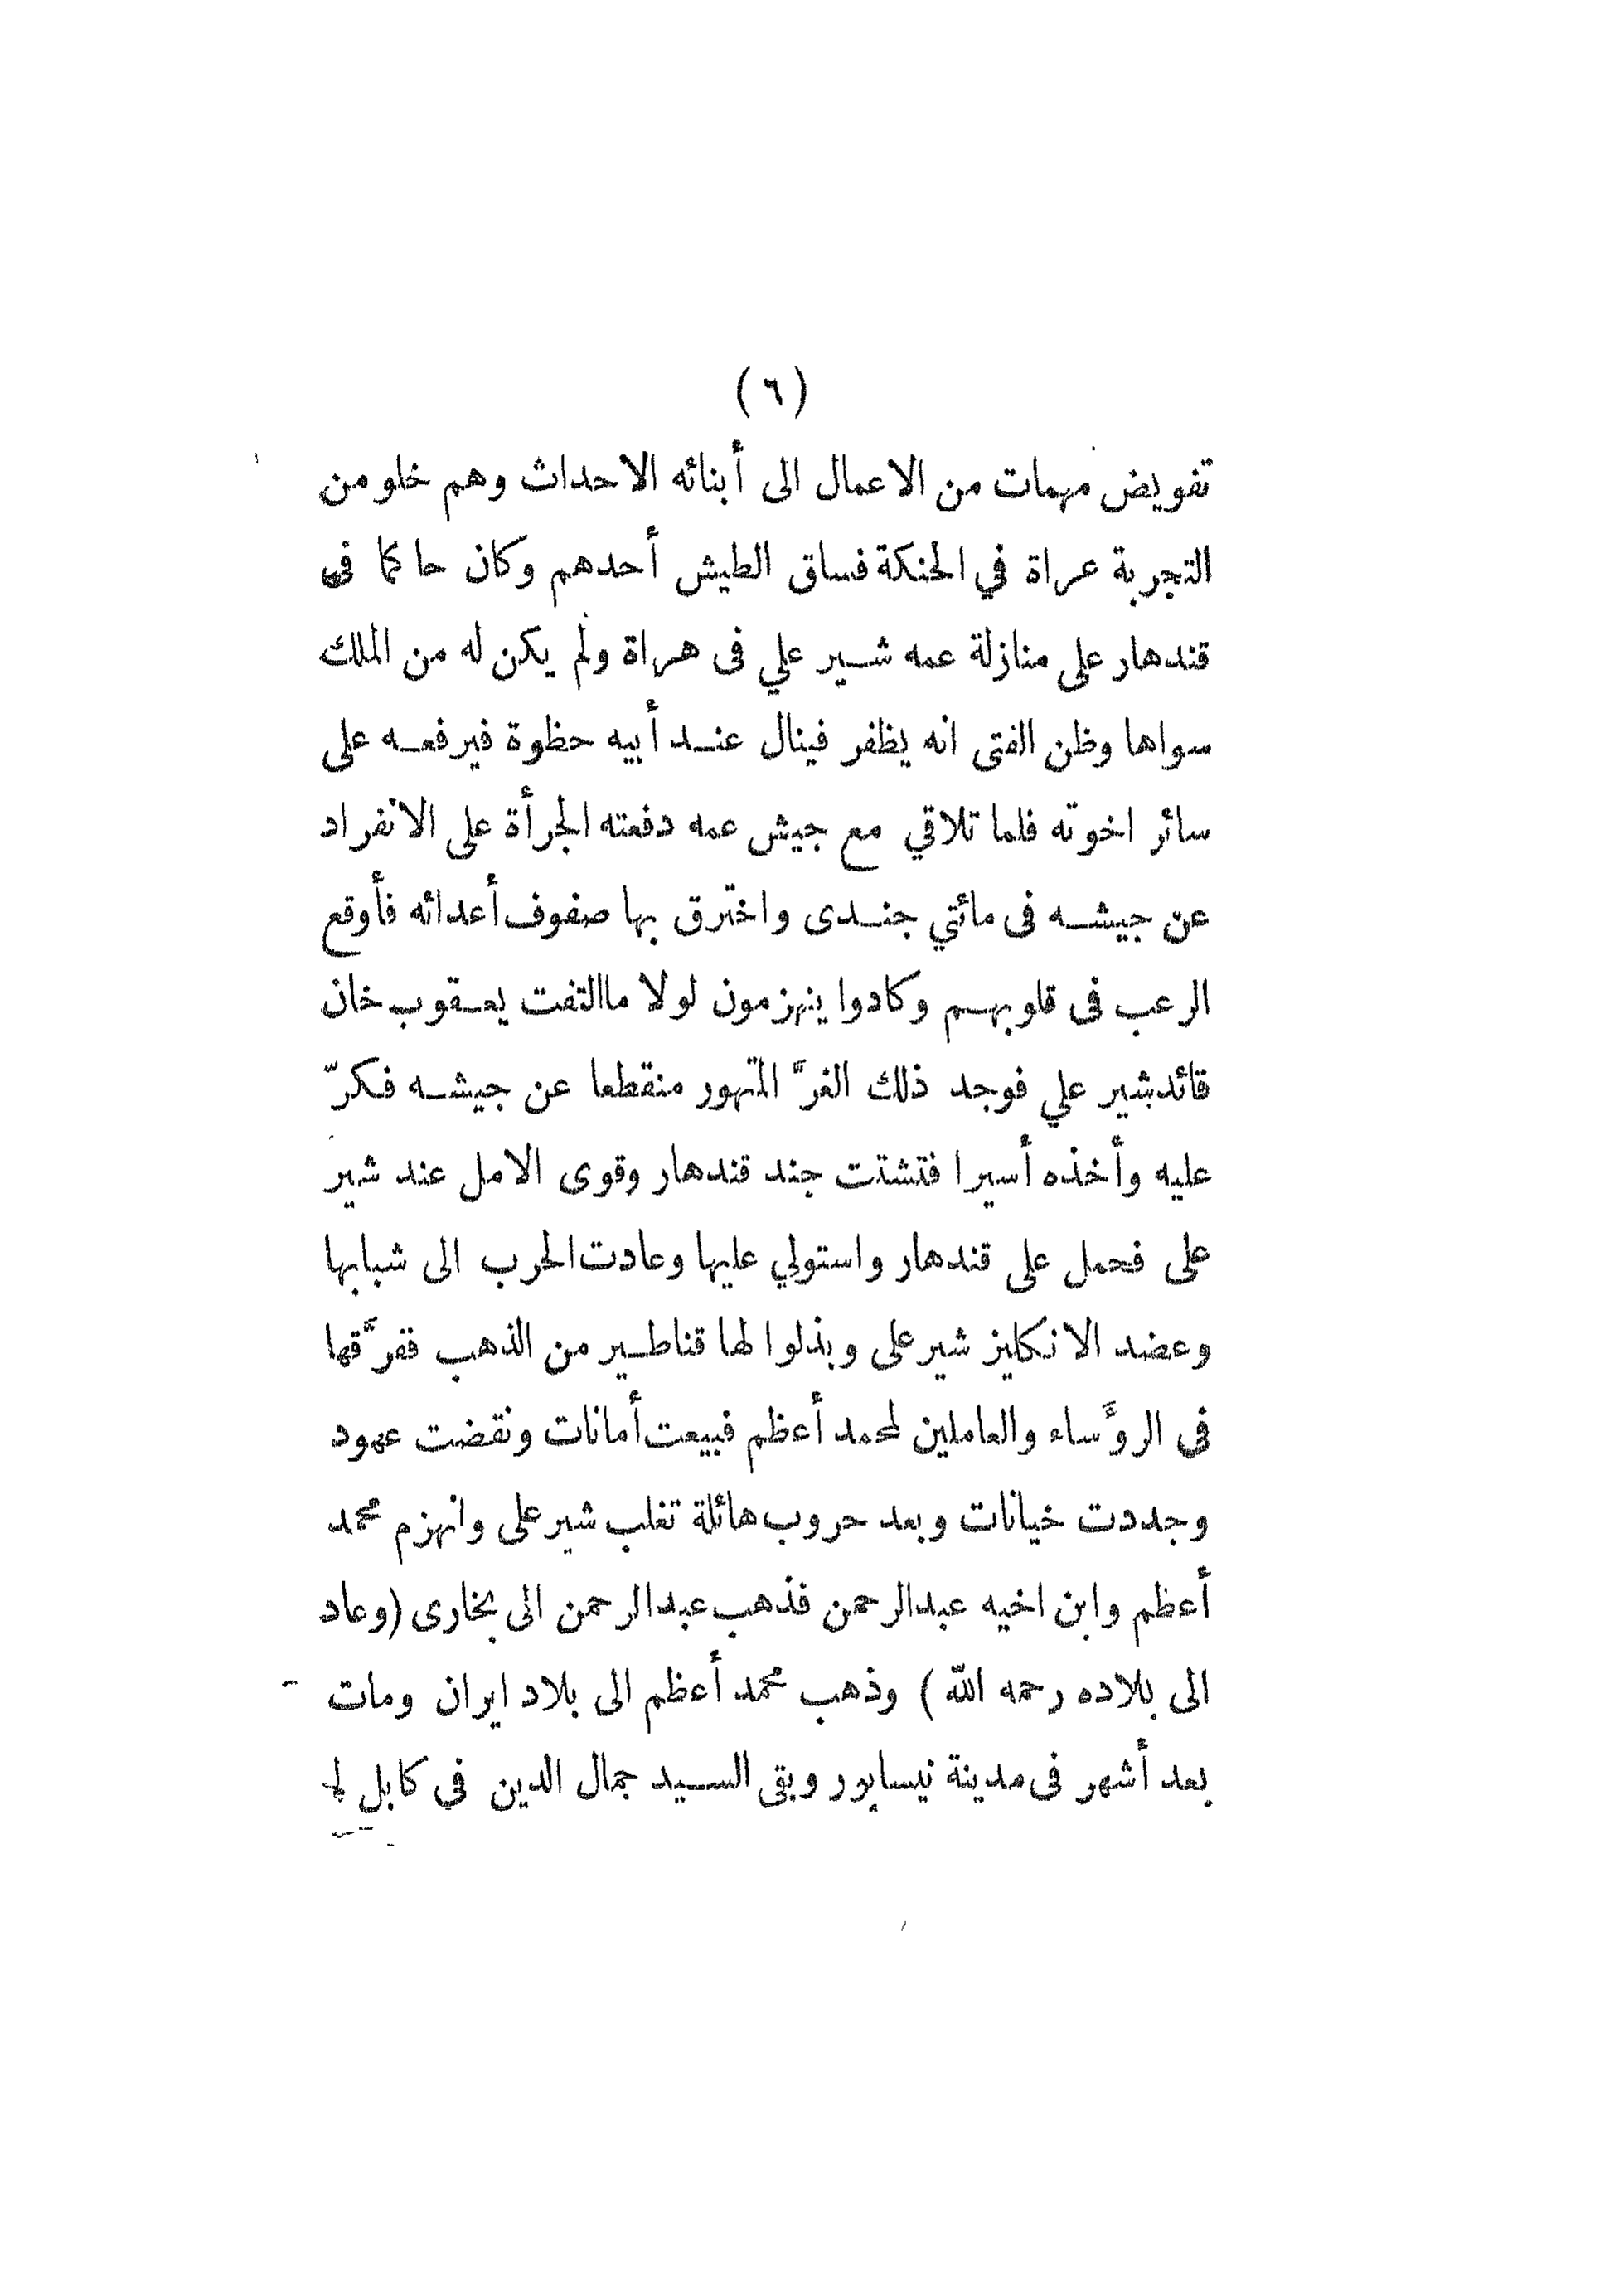 (٦)
تفويض مهمات من الاعمال الى أبنائه الاحداث وهم خلو من
التجربة عراة في الحنكة فساق الطيش أحدهم وكان حاكما فى
قندهار على منازلة عمه شير علي فى هراة ولم يكن له من الملك
سواها وظن الفتى انه يظفر فينال عند أبيه حظوة فيرفعه على
سائر اخوته فلما تلاقي مع جيش عمه دفعته الجرأة على الانفراد
عن جيشه فى مائتي جندى واخترق بها صفوف أعدائه فأوقع
الرعب فى قلوبهم وكادوا ينهزمون لولا ماالتفت يعقوب خان
قائد شير علي فوجد ذلك الغرَّ المتهور منقطعا عن جيشه فكرّ
عليه وأخذه أسيرا فتشتت جند قندهار وقوى الامل عند شير
على فحمل على قندهار واستولي عليها وعادت الحرب الى شبابها
وعضد الانكليز شير على وبذلوا لها قناطير من الذهب ففرَّقها
فى الرؤَساء والعاملين لمحمد أعظم فبيعت أمانات ونقضت عهود
وجددت خيانات وبعد حروب هائلة تغلب شير على وانهزم محمد
أعظم وابن اخيه عبدالرحمن فذهب عبدالرحمن الى بخارى (وعاد
الى بلاده رحمه اللّه) وذهب محمد أعظم الى بلاد ايران ومات
بعد أشهر فى مدينة نيسابور وبقى السيد جمال الدين في كابل لم